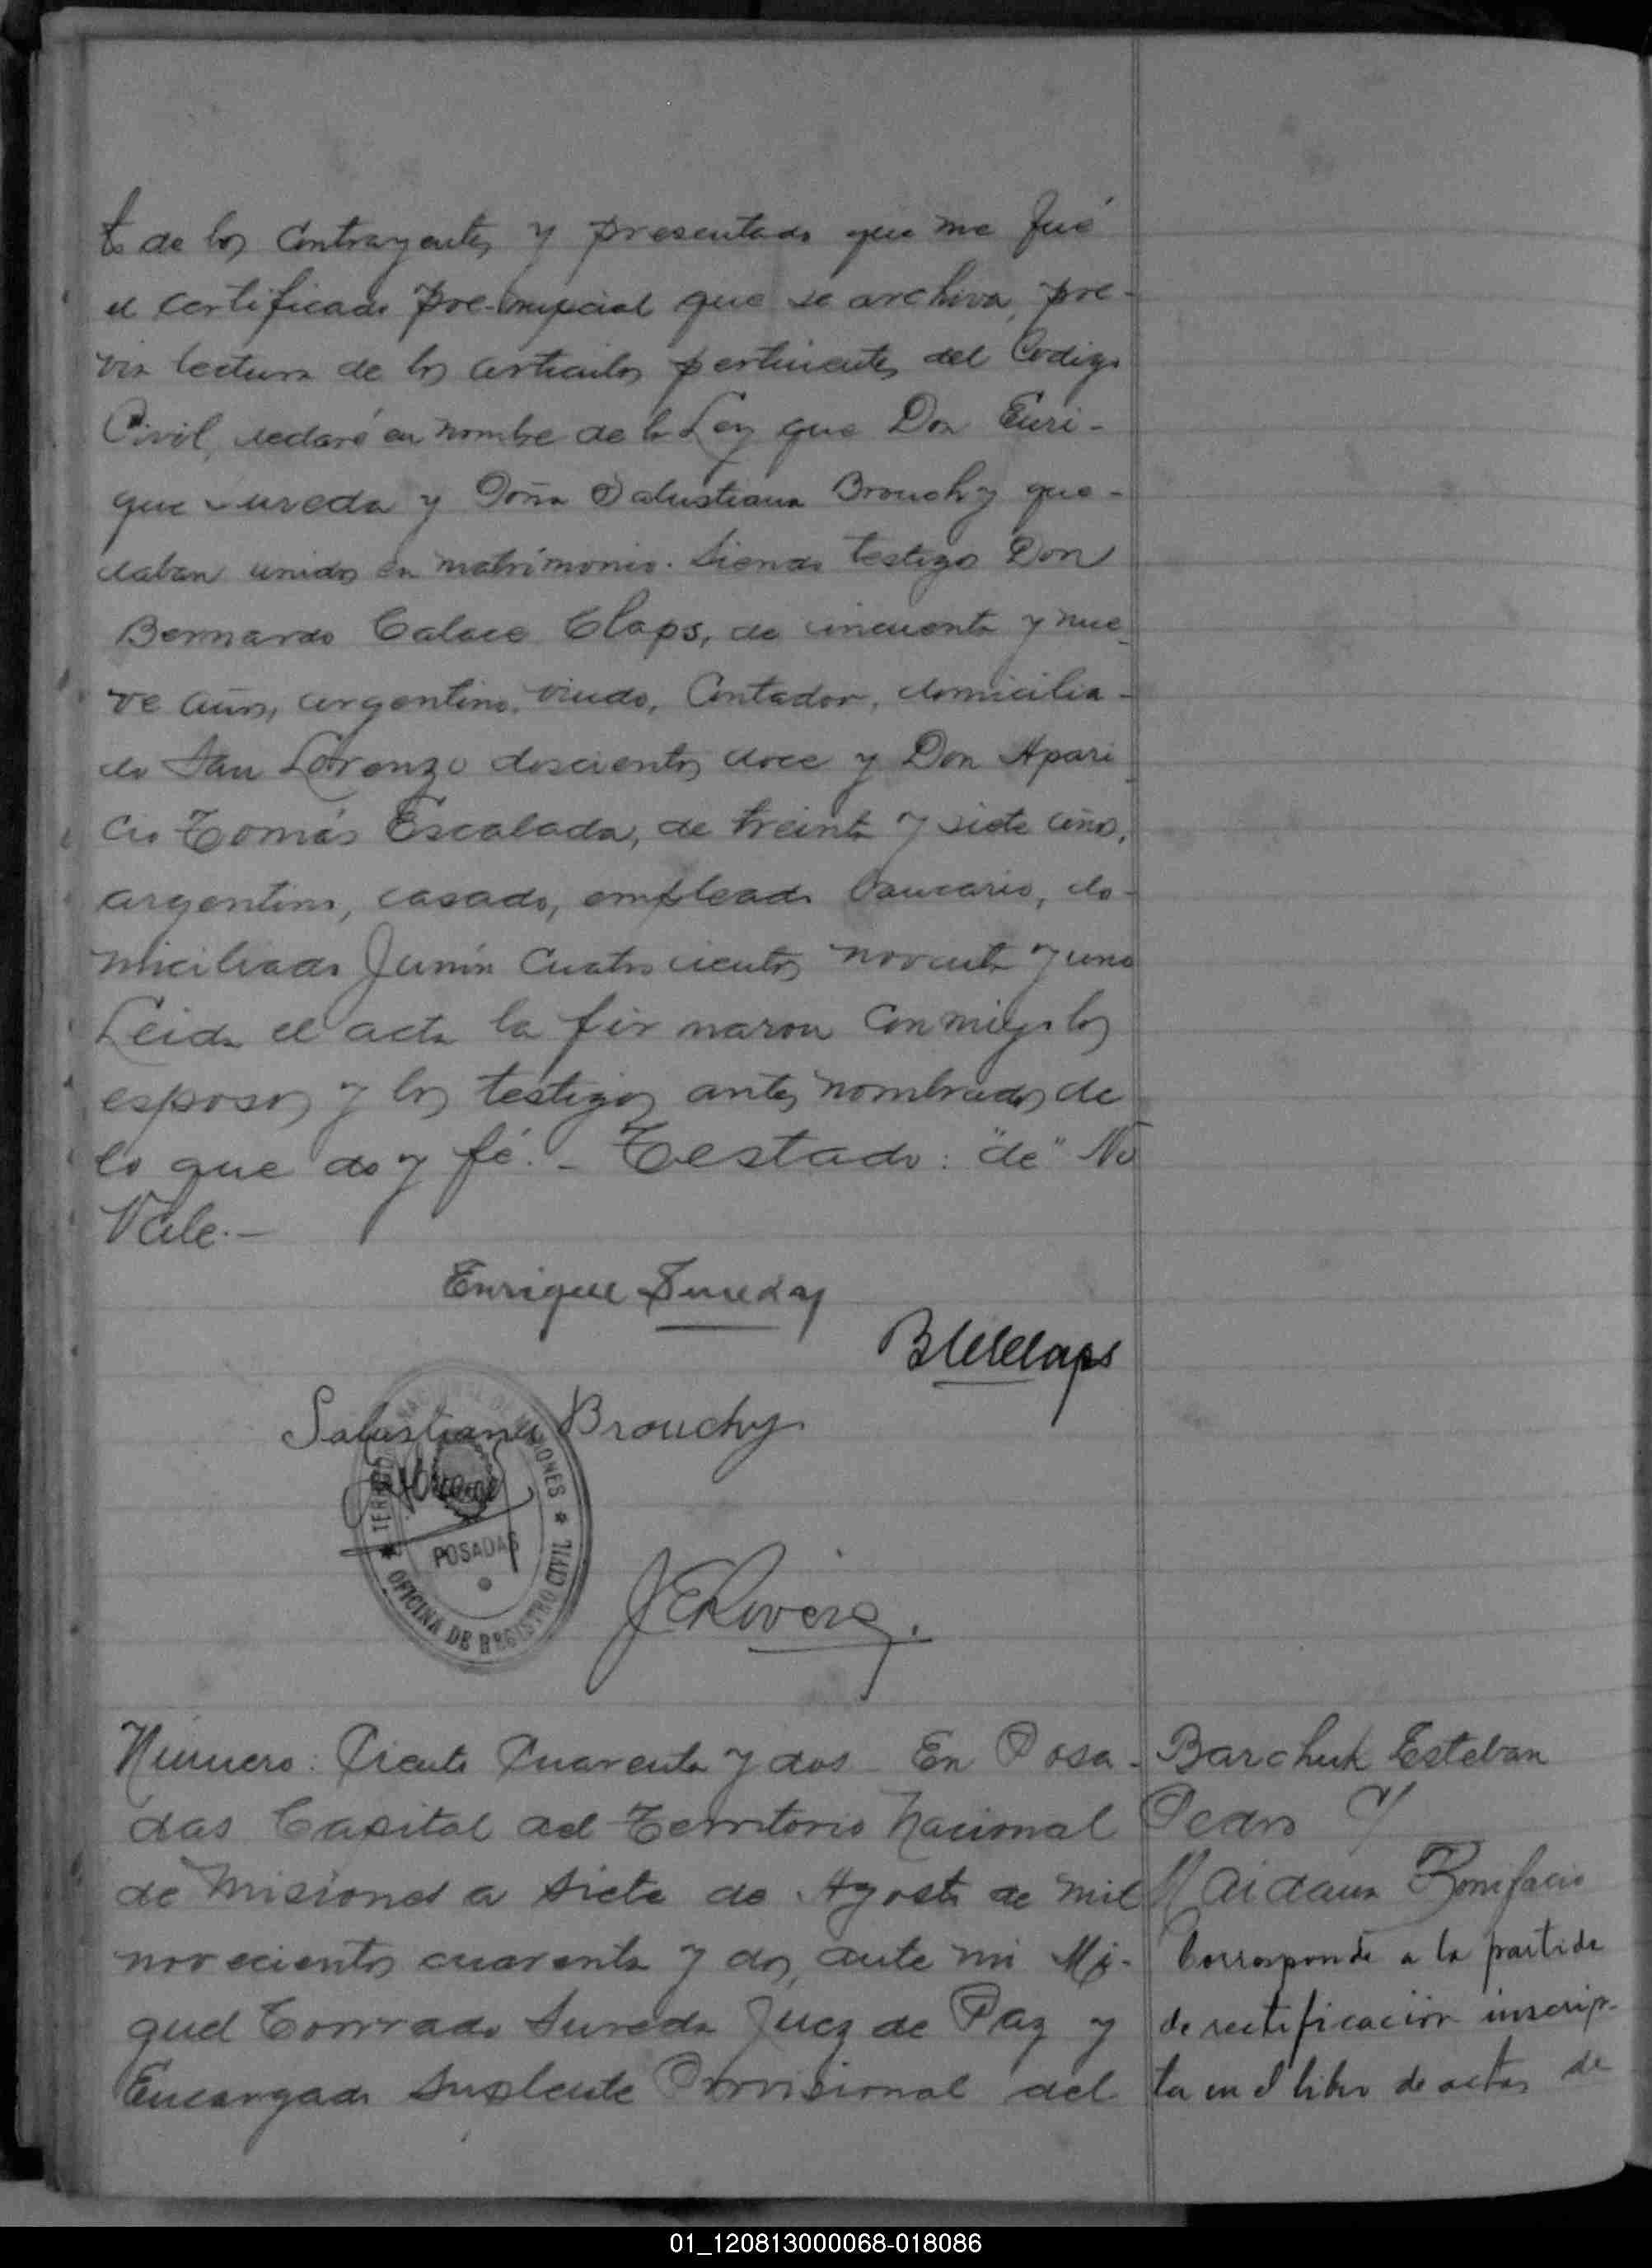 to de los contrayentes y presentado que me fué
el certificado pre-nupcial que se archiva, pre-
via lectura de los articulos pertinentes del Codigo
Civil, declaré en nombre de la Ley que Don Enri-
que Sureda y Doña Salustiana Brouchy que-
daban unidos en matrimonio. Siendo testigo Don
Bernardo Calace Claps, de cincuenta y nue_
ve años, argentino, viudo, Contador, domicilia-
do San Lorenzo doscientos doce y Don Apari_
cio Tomás Escalada, de treinta y siete años,
argentino, casado, empleado bancario, do-
miciliado Junín Cuatrocientos noventa y uno
Leida el acta la firmaron conmigo los
esposos y los testigos antes nombrados de
lo que doy fé. - Testado: "de" No
Vale.-
Enrique Sureda
Salustiana Brouchy
TERRITORIO NACIONAL DE MISIONES
POSADAS
OFICINA DE REGISTRO CIVIL
Número: Ciento Cuarenta y dos - En Posa-
das Capital del Territorio Nacional
de Misiones a siete de Agosto de mil
novecientos cuarenta y dos, ante mi Mi-
guel Conrrado Sureda Juez de Paz y
Encargado Suplente Provisional del
Barchuk Esteban
Pedro y/
Maidana Bonifacio
Corresponde a la partida
de rectificación inscrip-
ta en el libro de actas de
01_120813000068-018086